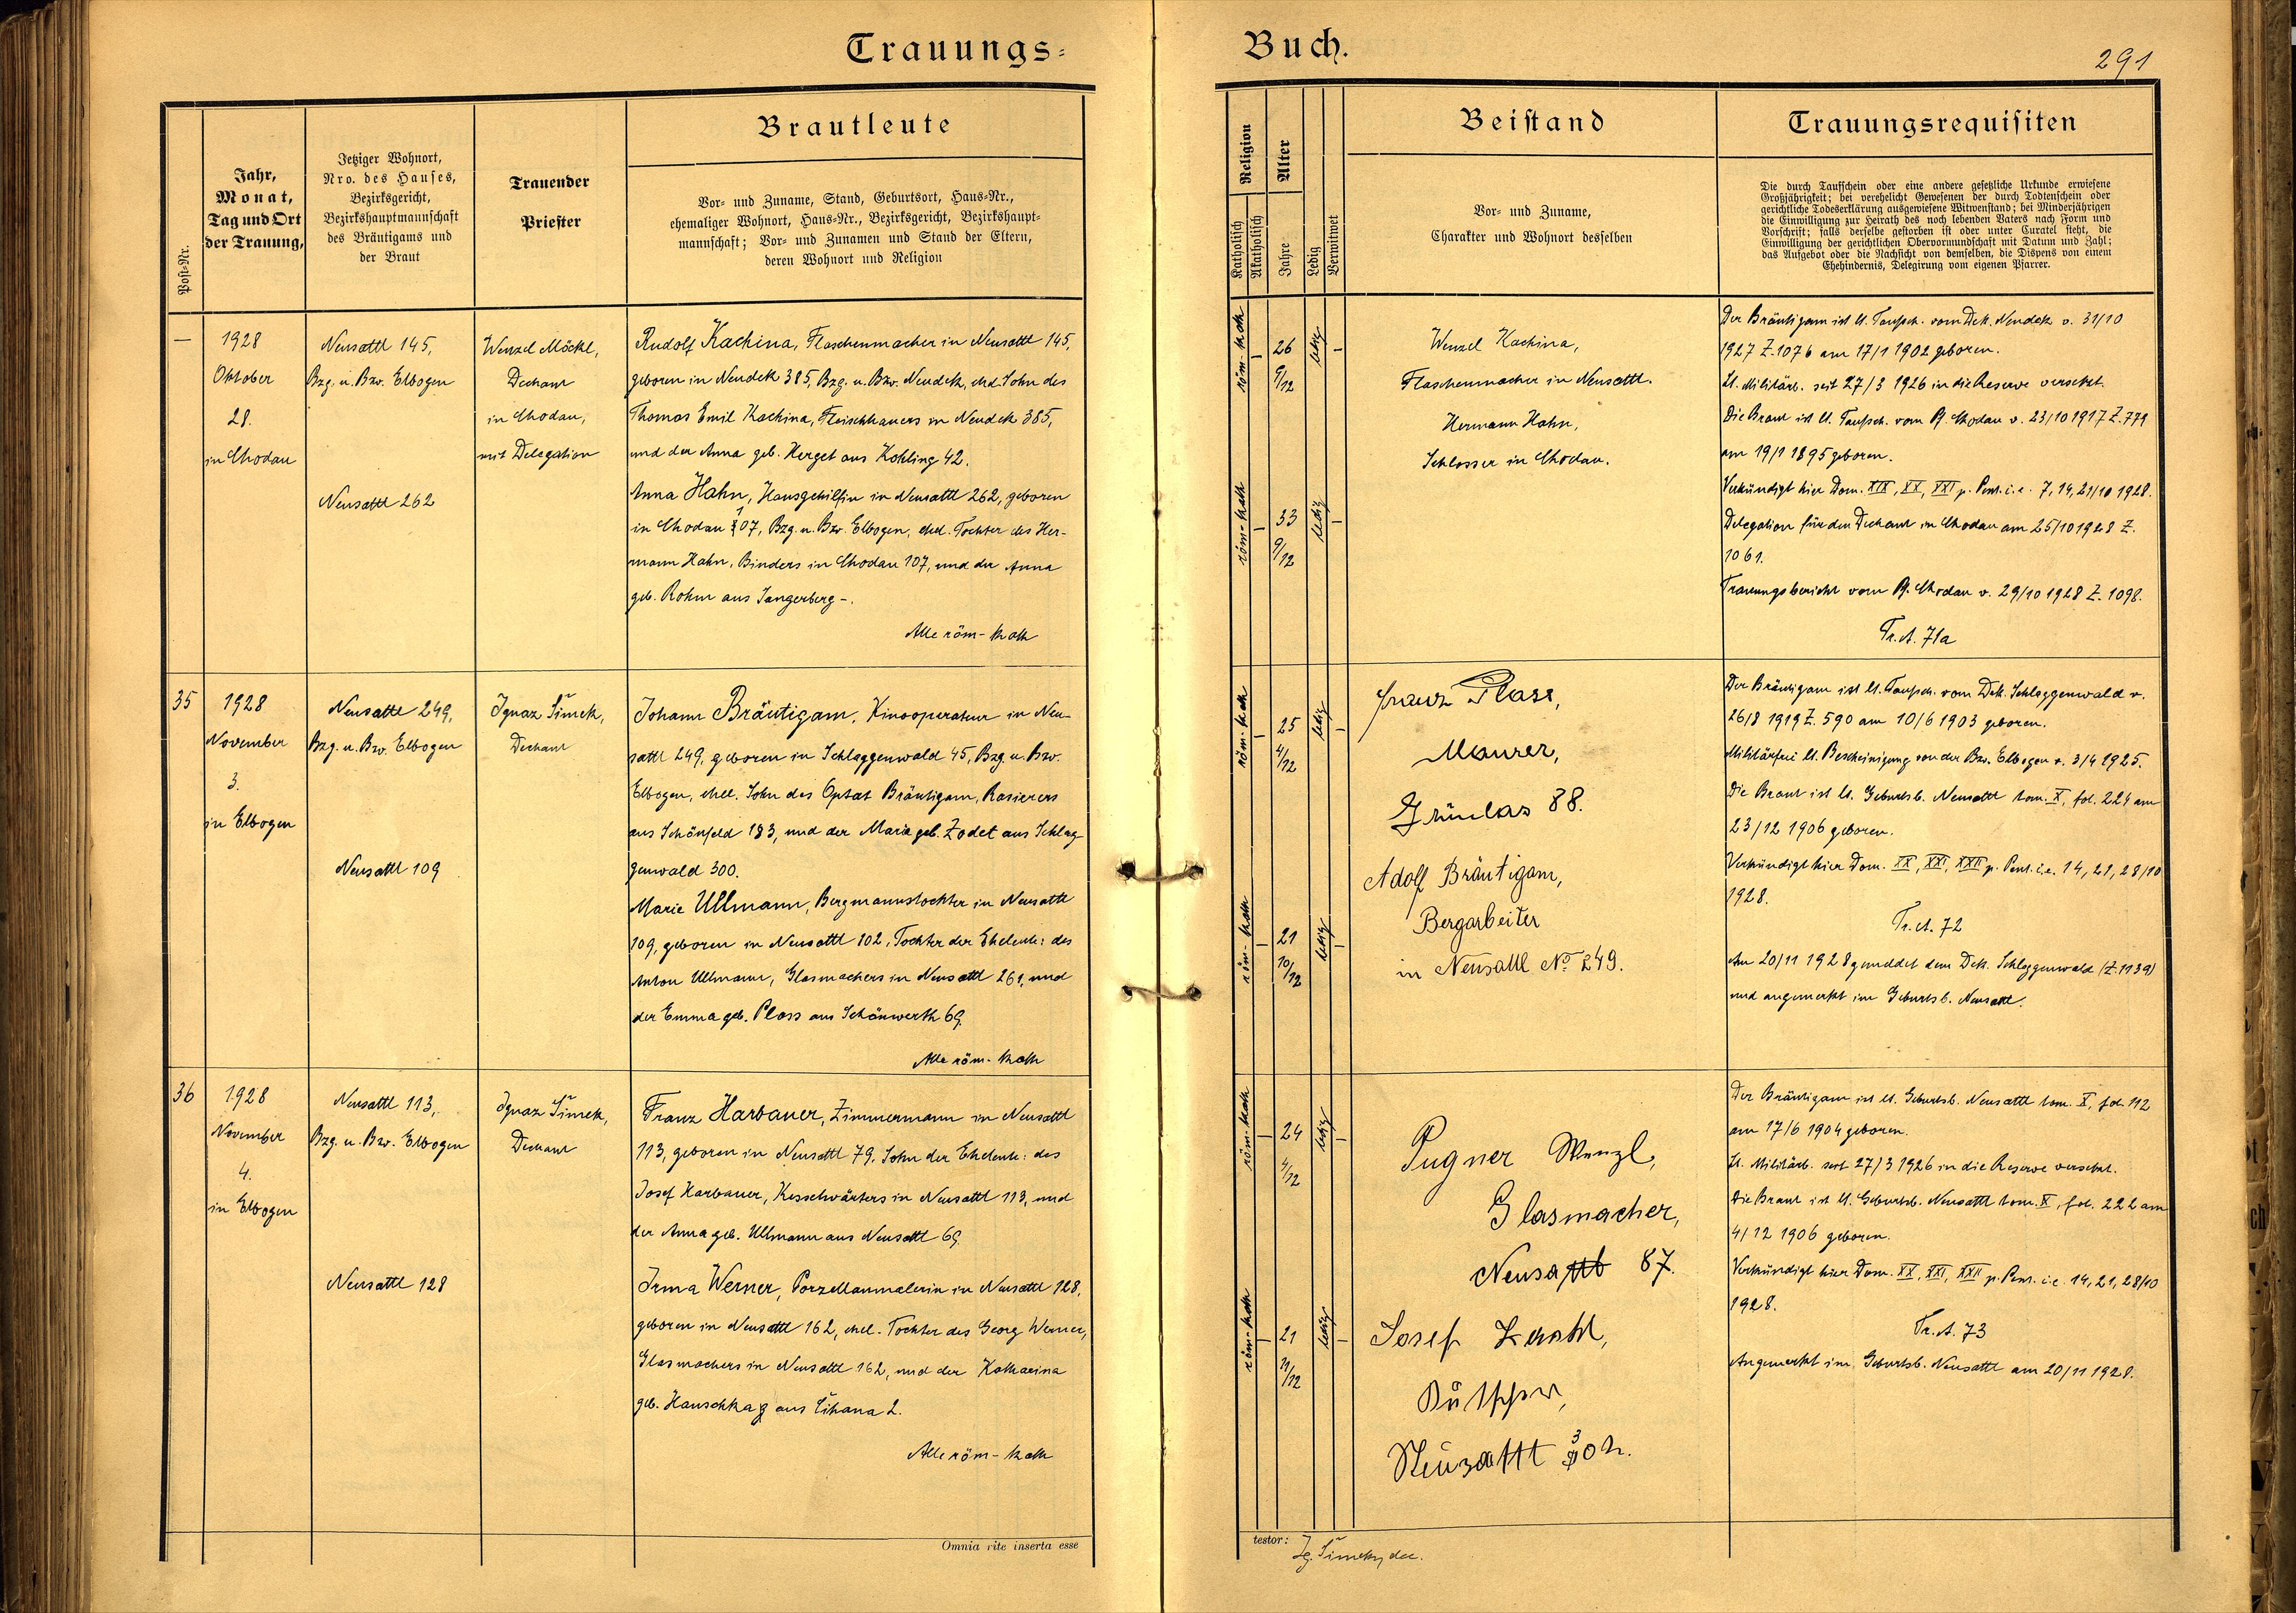 Trauungs-
Buch.
291
Post-Nr.
Jahr,
Monat,
Tag und Ort
der Trauung,
Jetziger Wohnort,
Nro. des Hauses,
Bezirksgericht,
Bezirkshauptmannschaft
des Bräutigams und
der Braut
Trauender
Priester
Brautleute
Vor- und Zuname, Stand, Geburtsort, Haus-Nr.,
ehemaliger Wohnort, Haus-Nr., Bezirksgericht, Bezirkshaupt-
mannschaft; Vor- und Zunamen und Stand der Eltern,
deren Wohnort und Religion
Religion
Katholisch
Akatholisch
Alter
Jahre
Ledig
Verwitwet
Beistand
Vor- und Zuname,
Charakter und Wohnort desselben
Trauungsrequisiten
Die durch Taufschein oder eine andere gesetzliche Urkunde erwiesene
Großjährigkeit; bei verehelicht Gewesenen der durch Todtenschein oder
gerichtliche Todeserklärung ausgewiesene Witwenstand; bei Minderjährigen
die Einwilligung zur Heirath des noch lebenden Vaters nach Form und
Vorschrift; falls derselbe gestorben ist oder unter Curatel steht, die
Einwilligung der gerichtlichen Obervormundschaft mit Datum und Zahl;
das Aufgebot oder die Nachsicht von demselben, die Dispens von einem
Ehehindernis, Delegirung vom eigenen Pfarrer.
—
1928
Oktober
28.
in Chodau
Neusattl 145,
Bzg. u. Bzv. Elbogen
Neusattl 262
Wenzel Möckl,
Dechant
in Chodau,
mit Delegation
Rudolf Kachina, Flaschenmacher in Neusattl 145,
geboren in Neudek 385, Bzg. u. Bzv. Neudek, ehel. Sohn des
Thomas Emil Kachina, Fleischhauers in Neudek 385,
und der Anna geb. Herget aus Kohling 42.
Anna Hahn, Hausgehilfin in Neusattl 262, geboren
in Chodau 107, Bzg. u. Bzv. Elbogen, ehel. Tochter des Her-
mann Hahn, Binders in Chodau 107, und der Anna
geb. Rohm aus Sangerberg -.
Alle röm-kath
röm-kath
26
9/12
ledig
röm-kath
33
9/12
ledig
Wenzel Kachina,
Flaschenmacher in Neusattl.
Hermann Hahn,
Schlosser in Chodau.
Der Bräutigam ist lt. Taufsch. vom Dek. Neudek v. 31/10
1927 Z. 1076 am 17/1 1902 geboren.
Lt. Militärb. seit 27/3 1926 in die Reserve versetzt.
Die Braut ist lt. Taufsch. vom Pf. Chodau v. 23/10 1917 Z. 779
am 19/1 1895 geboren.
Verkündigt hier Dom. XIX, XX, XXI p. Pent. i.e. 7, 14, 21/10 1928.
Delegation für den Dechant in Chodau am 25/10 1928 Z.
1061.
Trauungsbericht vom Pf. Chodau v. 29/10 1928 Z. 1098.
Tr. A. 71a
35
1928
November
3.
in Elbogen
Neusattl 249,
Bzg. u. Bzv. Elbogen
Neusattl 109
Ignaz Šimek,
Dechant
Johann Bräutigam, Kinooperateur in Neu-
sattl 249, geboren in Schlaggenwald 45, Bzg. u. Bzv.
Elbogen, ehel. Sohn des Optat Bräutigam, Rasierers
aus Schönfeld 183, und der Marie geb. Zodet aus Schlag-
genwald 300.
Marie Ullmann, Bergmannstochter in Neusattl
109, geboren in Neusattl 102, Tochter der Eheleute: des
Anton Ullmann, Glasmachers in Neusattl 261, und
der Emma geb. Ploss aus Schönwerth 69.
Alle röm-kath
röm-kath
25
4/12
ledig
röm-kath
21
10/12
ledig
Franz Plass,
Maurer,
Grünlas 88.
Adolf Bräutigam,
Bergarbeiter
in Neusattl No 249.
Der Bräutigam ist lt. Taufsch. vom Dek. Schlaggenwald v.
26/8 1919 Z. 590 am 10/6 1903 geboren.
Militärfrei lt. Bescheinigung von der Bzv. Elbogen v. 3/4 1925.
Die Braut ist lt. Geburtsb. Neusattl tom. X, fol. 224 am
23/12 1906 geboren.
Verkündigt hier Dom. XX, XXI, XXII p. Pent. i.e. 14, 21, 28/10
1928.
Tr. A. 72
Am 20/11 1928 gemeldet dem Dek. Schlaggenwald (Z. 1139)
und angemerkt im Geburtsb. Neusattl.
36
1928
November
4.
in Elbogen
Neusattl 113,
Bzg. u. Bzv. Elbogen
Neusattl 128
Ignaz Šimek,
Dechant
Franz Harbauer, Zimmermann in Neusattl
113, geboren in Neusattl 79, Sohn der Eheleute: des
Josef Harbauer, Kesselwärters in Neusattl 113, und
der Anna geb. Ullmann aus Neusattl 69.
Irma Werner, Porzellanmalerin in Neusattl 128,
geboren in Neusattl 162, ehel. Tochter des Georg Werner,
Glasmachers in Neusattl 162, und der Katharina
geb. Hauschka aus Lihana 2.
Alle röm-kath
röm-kath
24
4/12
ledig
röm-kath
21
11/12
ledig
Pugner Wenzl,
Glasmacher,
Neusattl 87.
Josef
Neusattl
Der Bräutigam ist lt. Geburtsb. Neusattl tom. X, fol. 112
am 17/6 1904 geboren.
Lt. Militärb. seit 27/3 1926 in die Reserve versetzt.
Die Braut ist lt. Geburtsb. Neusattl tom. X, fol. 222 am
4/12 1906 geboren.
Verkündigt hier Dom. XX, XXI, XXII p. Pent. i.e. 14, 21, 28/10
1928.
Tr. A. 73
Angemerkt im Geburtsb. Neusattl am 20/11 1928.
Omnia rite inserta esse
testor:
Ig. Šimek, dec.